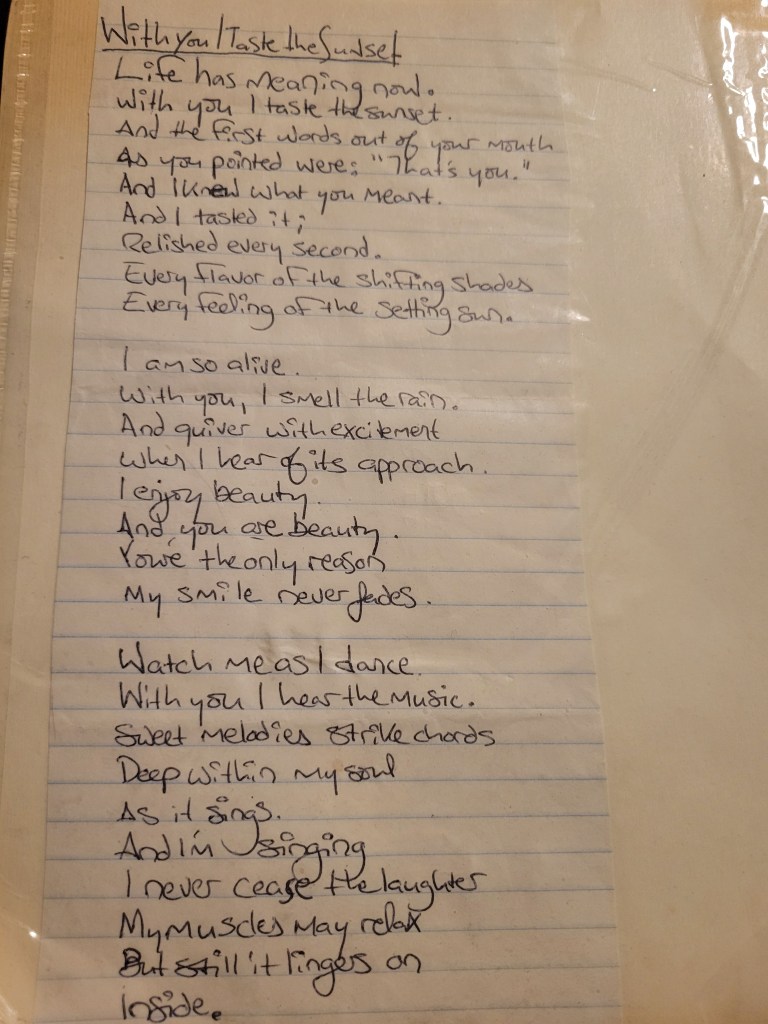 With you I Taste the Sunset
Life has meaning now.
With you I taste the sunset.
And the first words out of your mouth
As you pointed were: "That's you."
And I knew what you meant.
And I tasted it;
Relished every second.
Every flavor of the shifting shades
Every feeling of the setting sun.
I am so alive.
With you, I smell the rain.
And quiver with excitement
When I hear of its approach.
I enjoy beauty.
And you are beauty.
You're the only reason
My smile never fades.
Watch me as I dance.
With you I hear the music.
Sweet melodies strike chords
Deep within my soul
As it sings.
And I'm singing
I never cease the laughter
My muscles may relax
But still it lingers on
Inside.